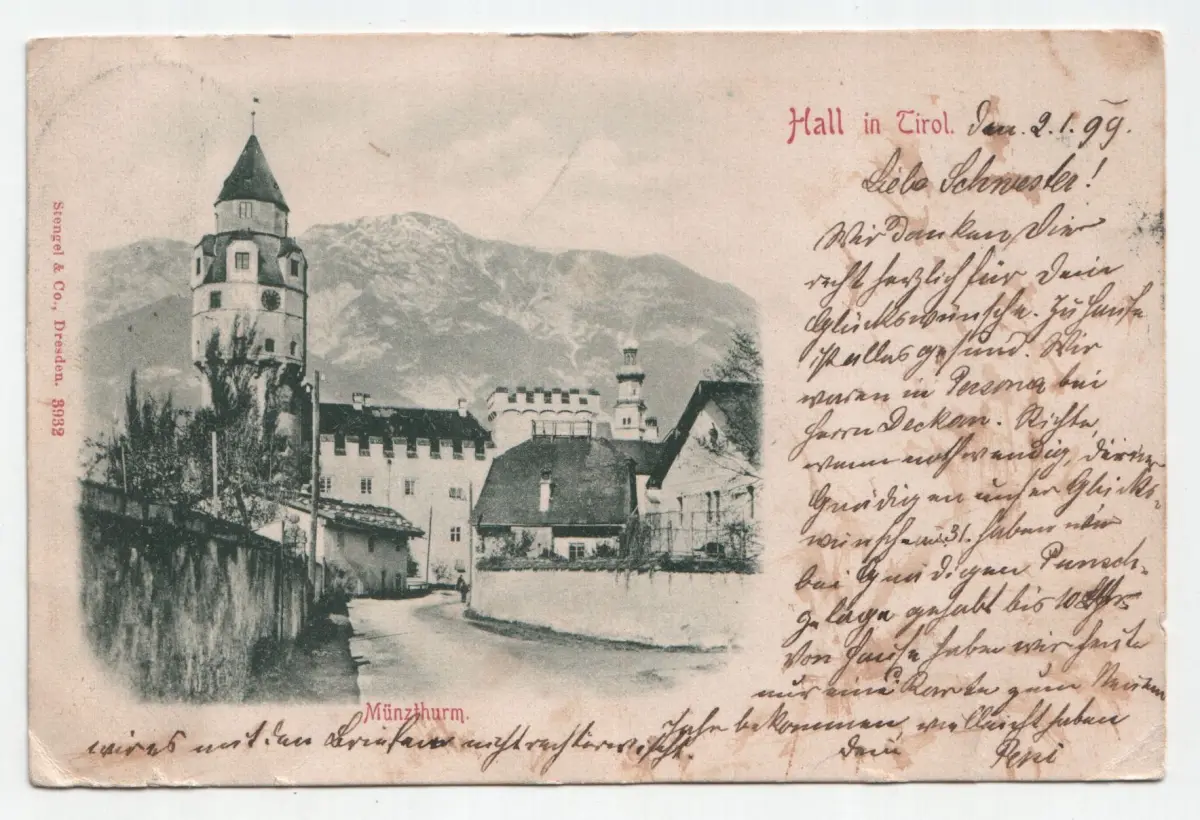 Hall in Tirol. den 2.1.99.
Liebe Schwester!
Wir danken Dir
recht herzlich für Dein
Glückswünsche. Zu Hause
ist alles gesund. Wir
waren in Person bei
Herrn Deckan. Richte,
wenn nothwendig, deiner
Gnädigen unsere Glücks-
wünsche 31. haben wir
bei Gnädigen Punsch-
gelage gehabt bis 10 Uhr
Von Hause haben wir heute
nur eine Karte zum Neuen
Jahr bekommen, vielleicht haben
wir es mit den Briefen nicht recht erwischt.
Dein
Pepi
Münzthurm.
Stengel & Co., Dresden. 3932